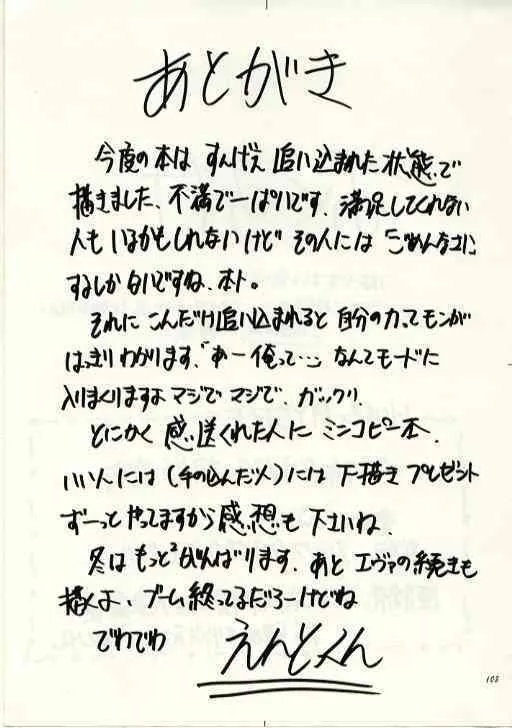 あとがき
今度の本は すんげえ 追い込まれた状態で
描きました、不満で一ぱいです、満足してくれない
人も いるかもしれないけど その人には「ごめんなさい」
するしかないですね、ホト。
それに こんだけ追い込まれると 自分の力ってモンが
はっきりわかります、「あー俺って…」なんてモードに
入りまくりますよ マジで マジで、ガックリ、
とにかく 感想送くれた人に ミニコピー本、
いい人には(手の込んだ人)には 下描き プレゼント
ずーっと やってますから 感想も 下さいね、
冬は もっと²がんばります、あと エヴァの続きも
描くよ、ブーム終ってるだろーけどね
でわでわ えんどくん
108